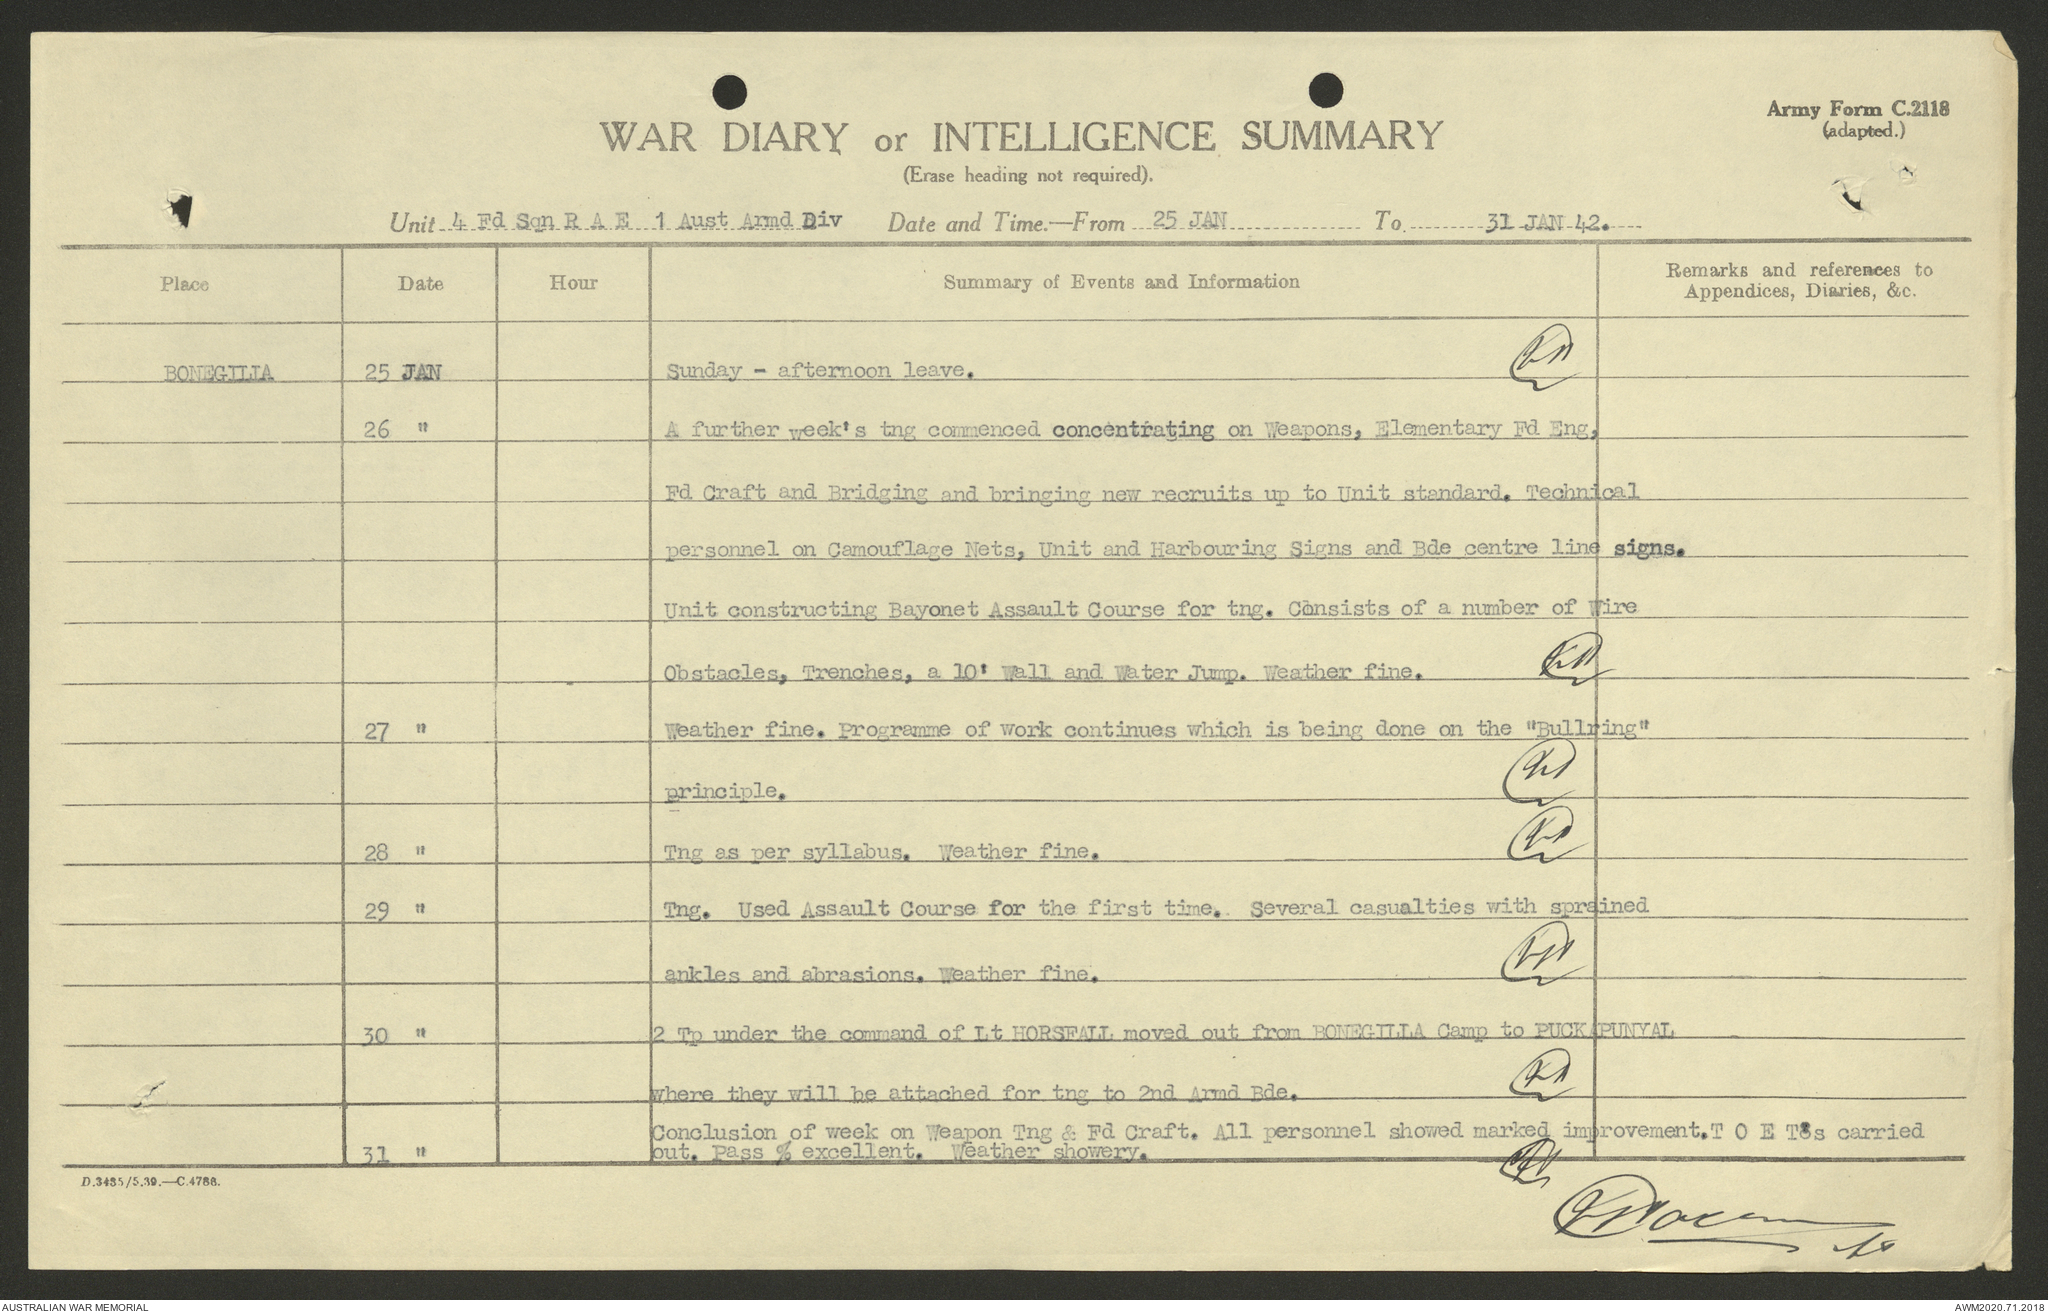 Army Form C.2118
(adapted.)
WAR DIARY or INTELLIGENCE SUMMARY
(Erase heading not required).
Unit 4 Fd Sqn R A E 1 Aust Armd Div Date and Time.—From 25 JAN To 31 JAN 42.
Place Date Hour Summary of Events and Information Remarks and references to
Appendices, Diaries, &c.
BONEGILIA 25 JAN Sunday - afternoon leave.
26 " A further week's tng commenced concentrating on Weapons, Elementary Fd Eng,
Fd Craft and Bridging and bringing new recruits up to Unit standard. Technical
personnel on Camouflage Nets, Unit and Harbouring Signs and Bde centre line signs.
Unit constructing Bayonet Assault Course for tng. Consists of a number of Wire
Obstacles, Trenches, a 10' Wall and Water Jump. Weather fine.
27 " Weather fine. Programme of work continues which is being done on the "Bullring"
principle.
28 " Tng as per syllabus. Weather fine.
29 " Tng. Used Assault Course for the first time. Several casualties with sprained
ankles and abrasions. Weather fine.
30 " 2 Tp under the command of Lt HORSFALL moved out from BONEGILLA Camp to PUCKAPUNYAL
where they will be attached for tng to 2nd Armd Bde.
Conclusion of week on Weapon Tng & Fd Craft. All personnel showed marked improvement.T O E T's carried
31 " out. Pass % excellent. Weather showery.
D.3485/5.39.—C.4788.
AUSTRALIAN WAR MEMORIAL
AWM2020.71.2018